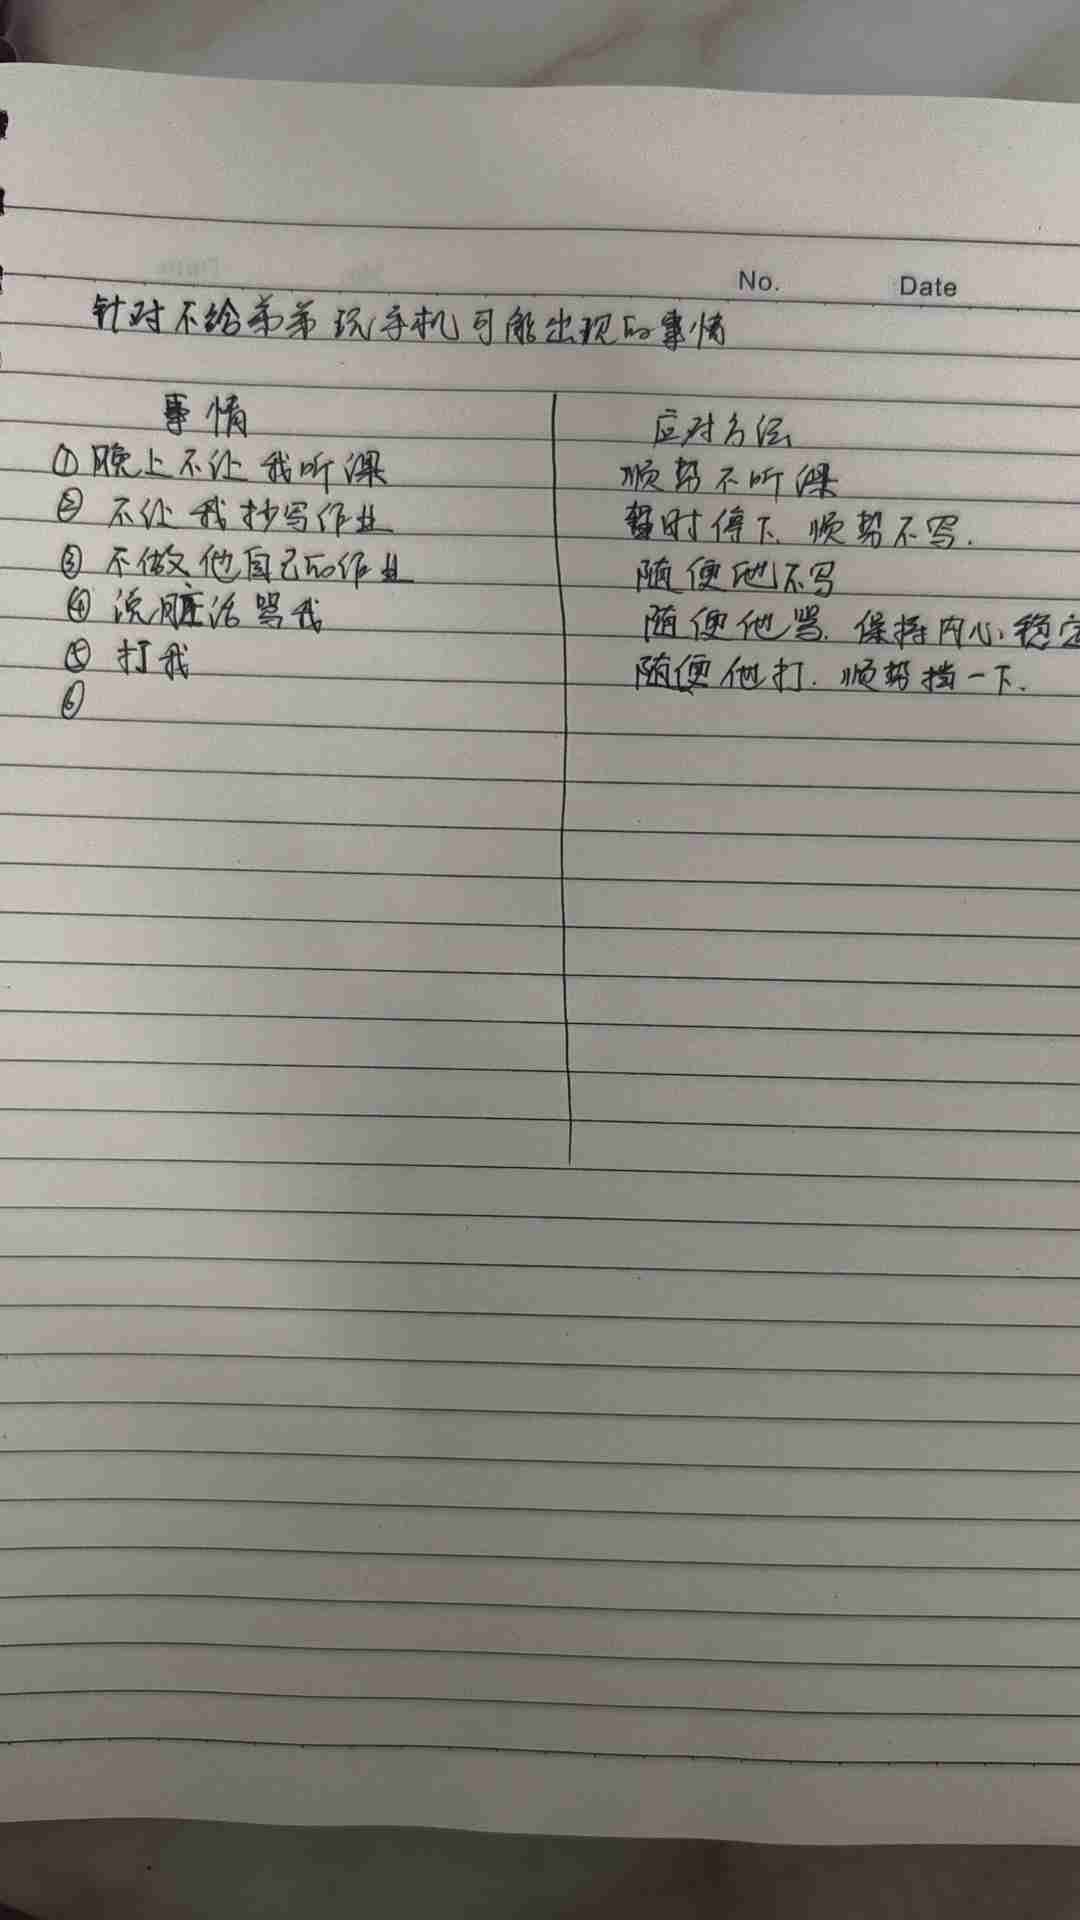 No. Date
针对不给弟弟玩手机可能出现的事情
事情 应对方法
①晚上不让我听课 顺势不听课
② 不让我抄写作业 暂时停下、顺势不写.
③ 不做他自己的作业 随便他不写
④ 说脏话骂我 随便他骂、保持内心稳定
⑤ 打我 随便他打. 顺势挡一下.
⑥